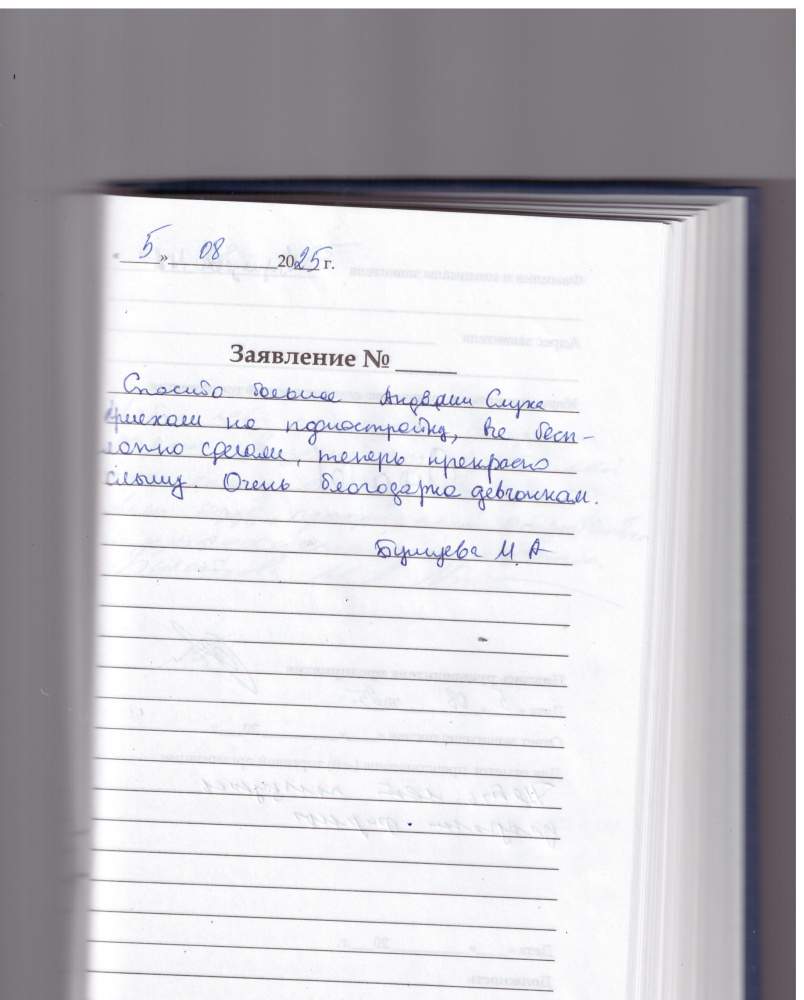 «5» 08 2025 г.
Заявление №
Спасибо большое Академии Слуха
Приехали на поднастройку, все бесп-
латно сделали, теперь прекрасно
слышу. Очень благодарна девчонкам.
М. А